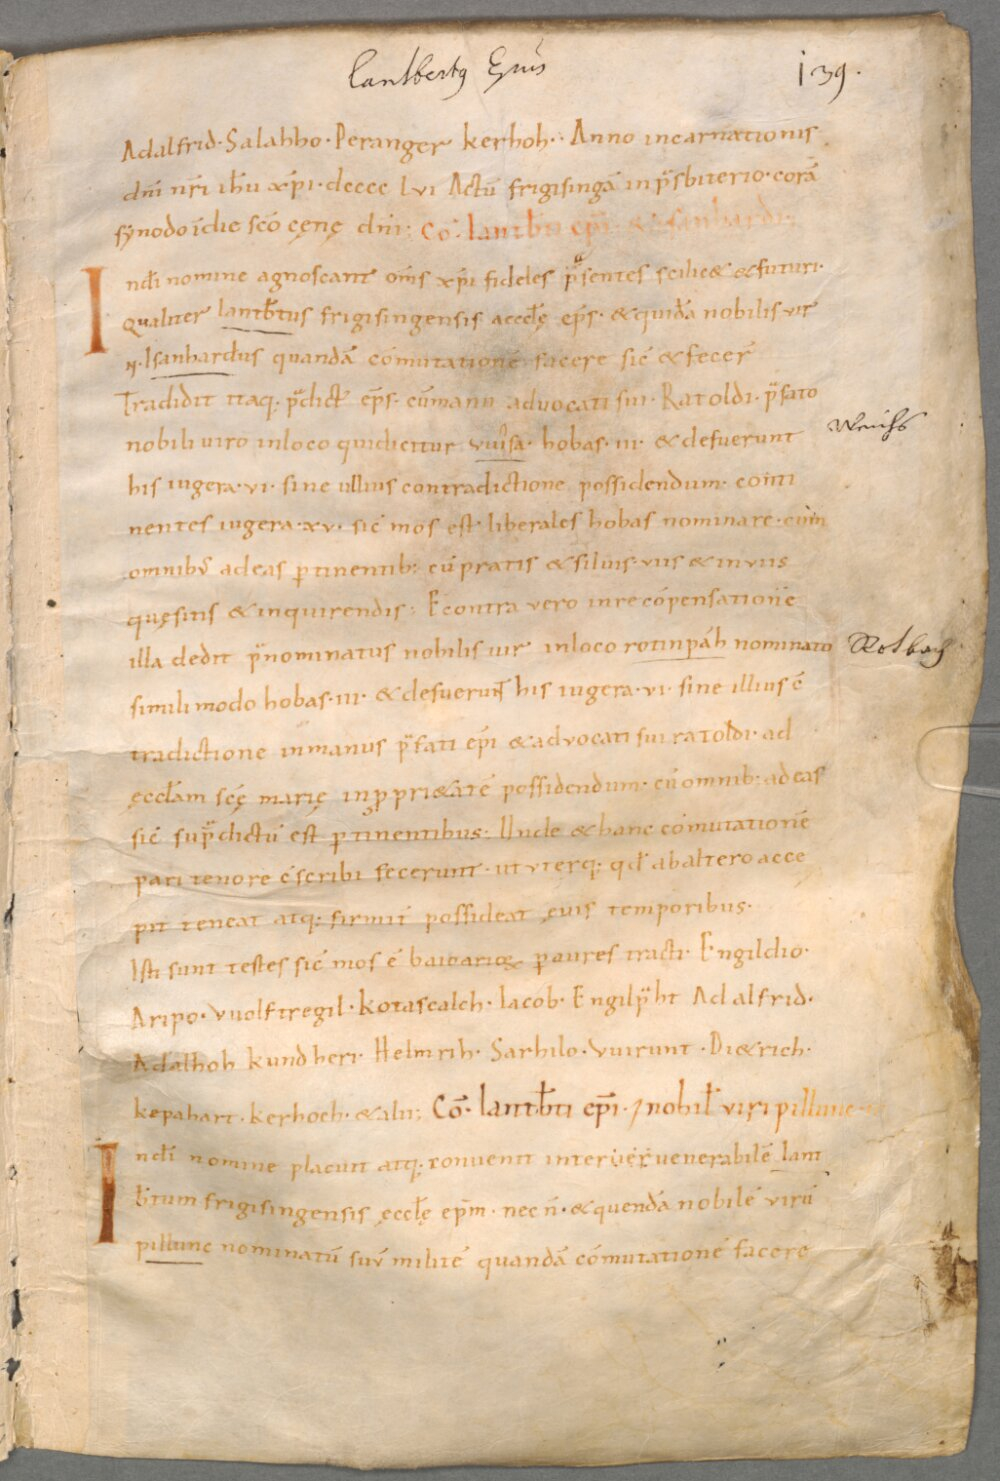 lantbertꝰ Epūs
139.
Adalfrid · Salahho · Peranger kerhoh · Anno incarnationis
dn̄i nr̄i ih̄u xp̄i · dcccc lvi Actū frigisingā in p̄sbiterio · corā
synodo ī die sc̄o cęnę dn̄i; Cō · lantb̄ti ep̄i · & isanhardi;
Ind̄i nomine agnoscant om̄s xp̄i fideles p̄sentes scilic& & futuri ·
Qualiter lantb̄tus frigisingensis aeccłę ep̄s · & quidā nobilis vir
N · Isanhardus quandā cōmutationē facere sic̄ & fecer̄
Tradidit itaq; p̄dict̄ ep̄s · cū manu advocati sui · Ratoldi · p̄fato
nobili uiro in loco qui dicitur vuihsa · hobas · iii · & defuerunt
his iugera · vi · sine ullius contradictione possidendum · conti
nentes iugera · xv · sic̄ mos est liberales hobas nominare · cum
omnibꝰ ad eas ꝑtinentib; cū pratis & siluis · viis & inviis
quęsitis & inquirendis; Econtra vero in recōpensationē
illa dedit p̄nominatus nobilis uir in loco rotinpah nominato
simili modo hobas · iii · & defuerunt his iugera · vi · sine illius c̄
tradictione in manus p̄fati ep̄i & advocati sui ratoldi · ad
ęccłam sc̄ę marię in ꝓpri&atē possidendum · cū omnib; ad eas
sic̄ sup̄dictū est ꝑtinentibus; Unde & hanc cōmutationē
pari tenore c̄scribi fecerunt · ut vterq; qd̄ ab altero acce
pit teneat atq; firmit̄ possideat ęuis temporibus ·
Isti sunt testes sic̄ mos ē baiuuarioꝝ ꝑ aures tracti · Engildio ·
Aripo · vuolftregil · kotascalch · Iacob · Engilp̄ht Adalfrid ·
Adalhoh kundheri · Helmrih · Sarhilo · vuirunt · Di&rich ·
kepahart · kerhoch · & alii; Cō · lantb̄ti ep̄i · ⁊ nobił viri pillunc
Ind̄i nomine placuit atq; conuenit inter venerabilē lant
b̄tum frigisingensis ęccłę ep̄m · nec n̄ · & quendā nobilē virū
pillunc nominatū suū militē quandā cōmutationē facere
Weichs
Rotbach